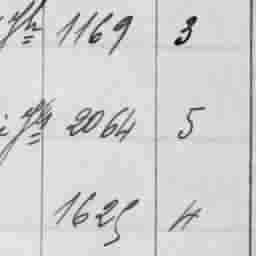 1169 3
2064 5
1625 4